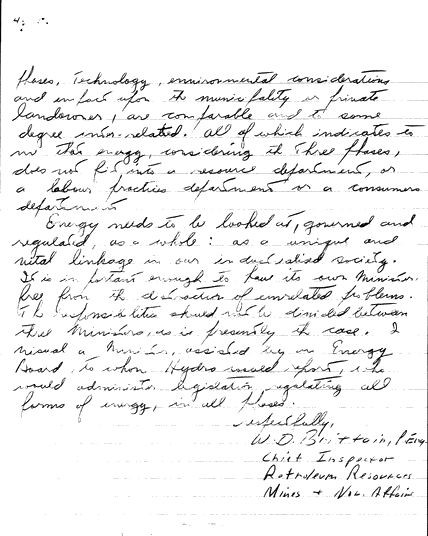 phases. Technology, environmental considerations
and impact upon the municipality or private
landowner, are comparable and to some
degree inter-related. All of which indicates to
me that energy, considering the three phases,
does not fit into a resource department, or
a labour practices department or a consumers
department.
Energy needs to be looked at, governed and
regulated, as a whole: as a unique and
vital linkage in our industrialised society.
It is important enough to have its own Minister
free from the distraction of unrelated problems.
The responsibilities should not be divided between
three Ministers, as is presently the case. I
visual a Minister, assisted by an Energy
Board, to whom Hydro would report, who
would administer legislation regulating all
forms of energy, in all phases.
respectfully,
W. D. Brittain, P. Eng.
Chief Inspector
Petroleum Resources
Mines + Nor. Affairs